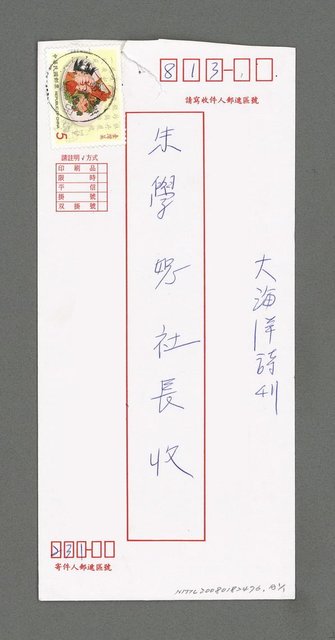 813
請寫收件人郵遞區號
大海洋詩刊
朱學恕社長收
5
請註明✓方式
印刷品
限時
平信
掛號
双掛號
231
寄件人郵遞區號